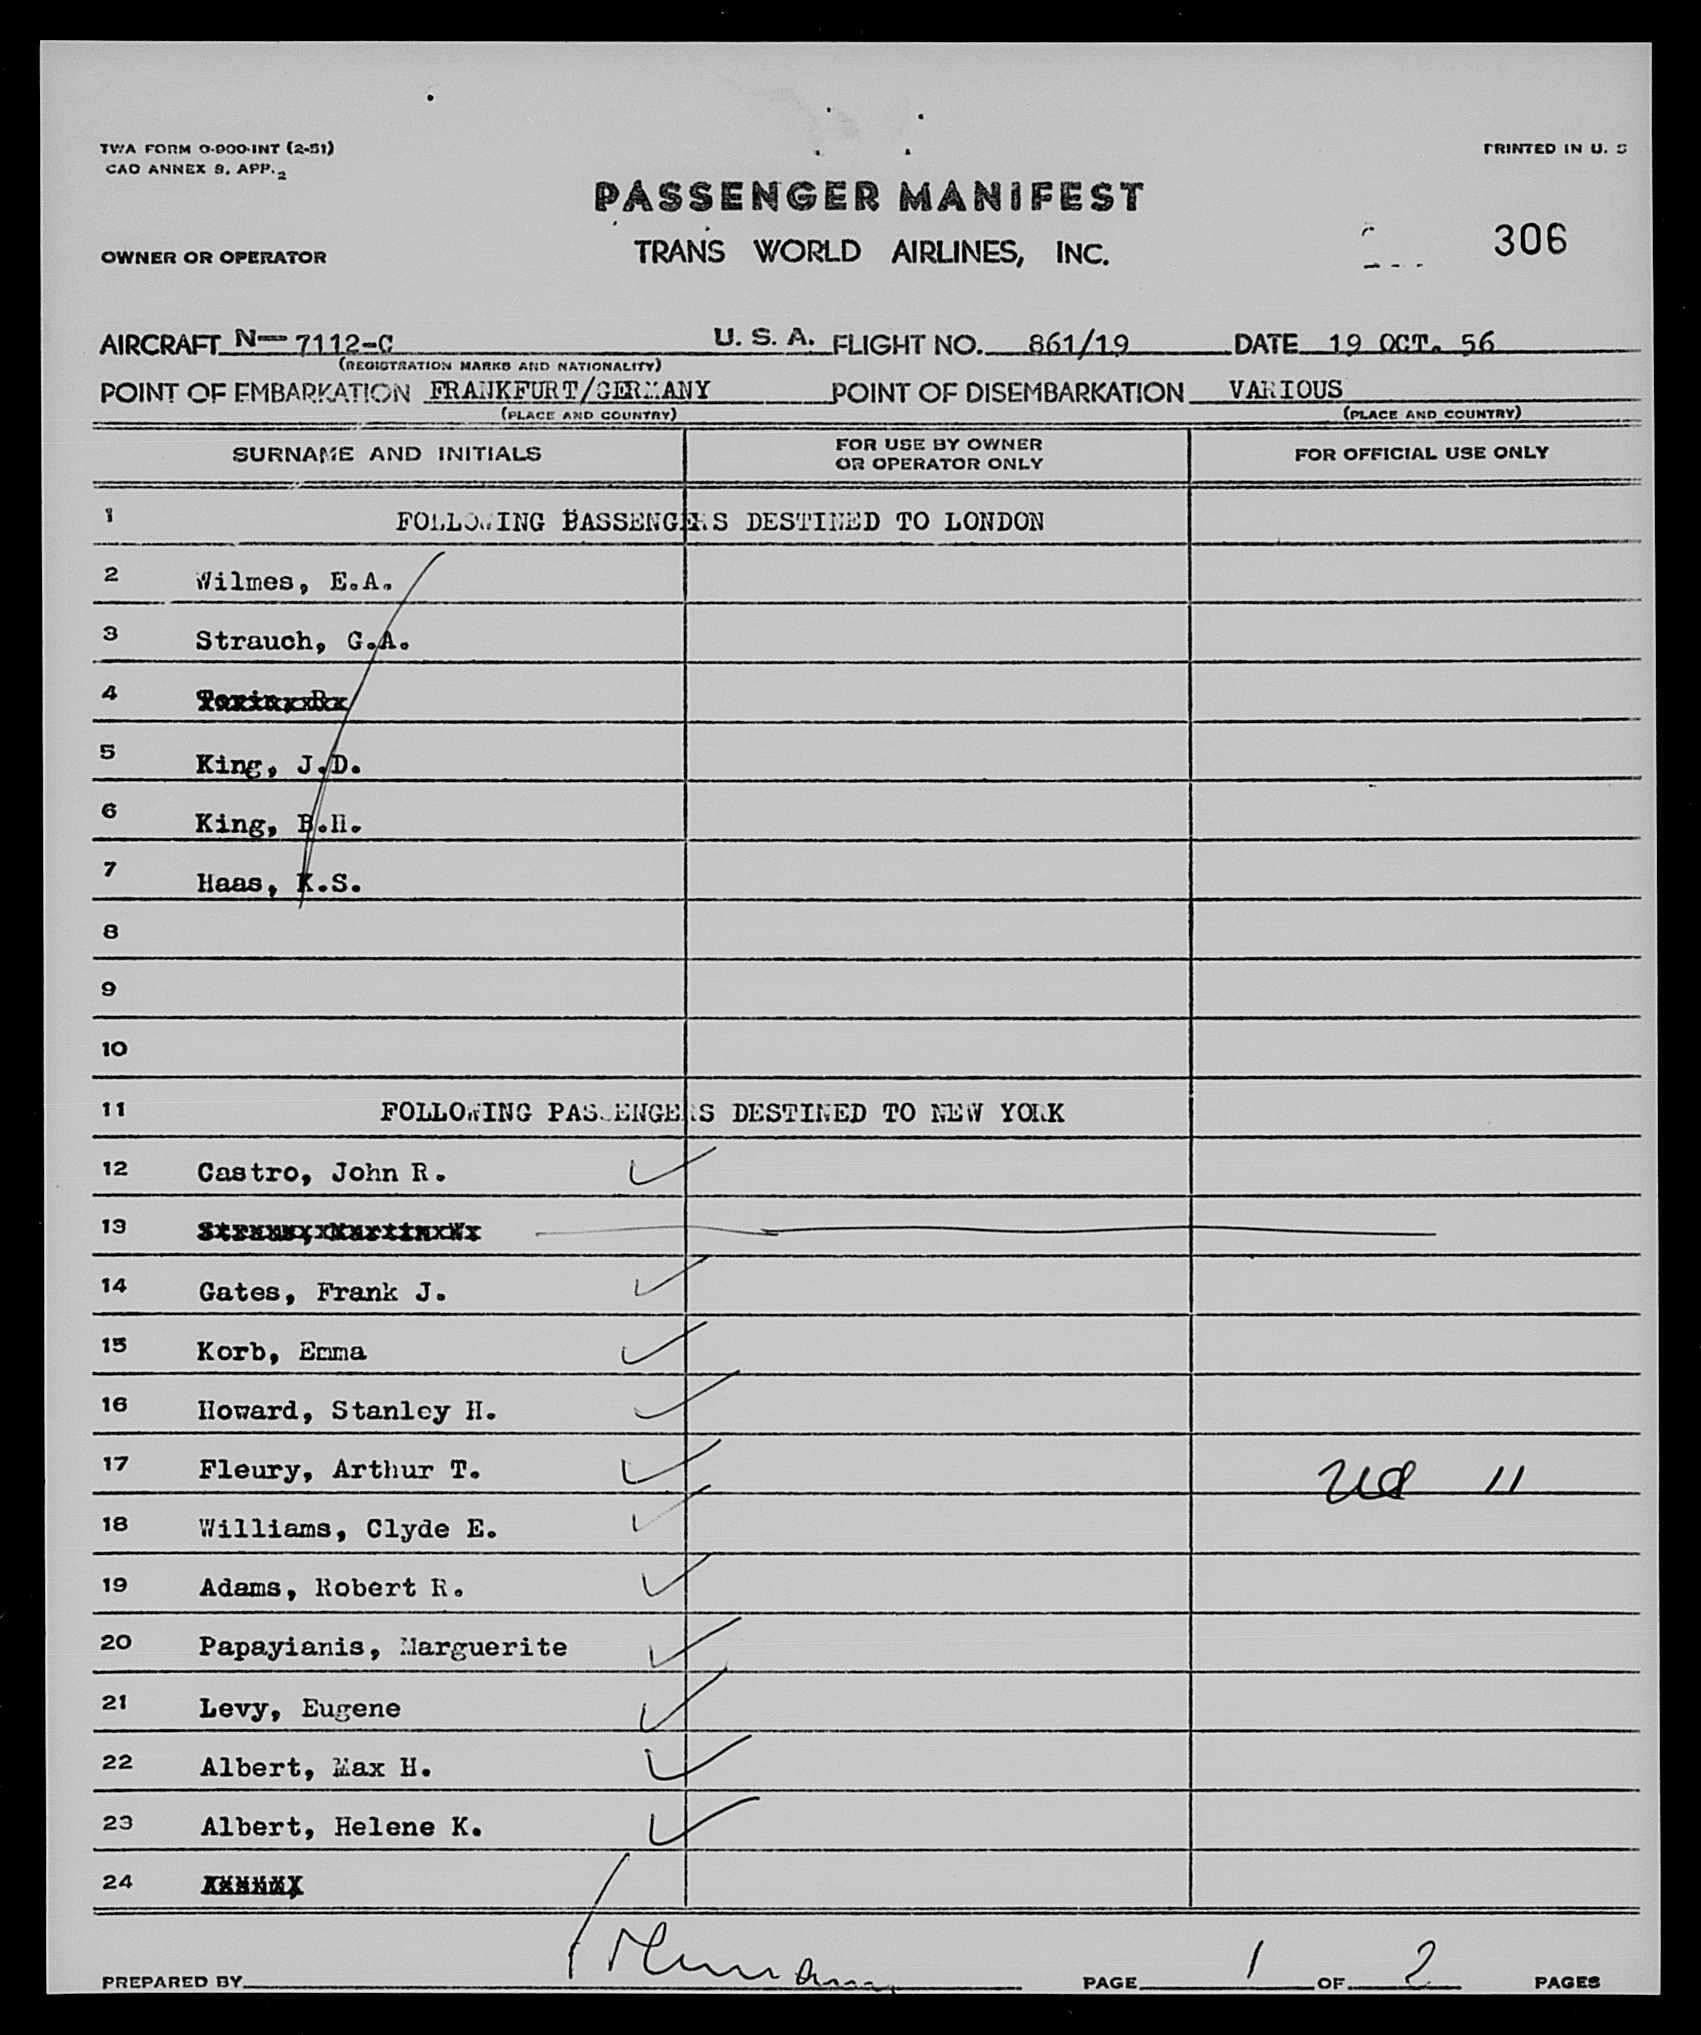 TWA FORM O-900-INT (2-51)
CAO ANNEX 9, APP. 2
PRINTED IN U. S
PASSENGER MANIFEST
306
OWNER OR OPERATOR TRANS WORLD AIRLINES, INC.
AIRCRAFT N— 7112-C U. S. A. FLIGHT NO. 861/19 DATE 19 OCT. 56
(REGISTRATION MARKS AND NATIONALITY)
POINT OF EMBARKATION FRANKFURT/GERMANY POINT OF DISEMBARKATION VARIOUS
(PLACE AND COUNTRY) (PLACE AND COUNTRY)
SURNAME AND INITIALS FOR USE BY OWNER OR OPERATOR ONLY FOR OFFICIAL USE ONLY
1 FOLLOWING PASSENGERS DESTINED TO LONDON
2 Wilmes, E.A.
3 Strauch, G.A.
4
5 King, J.D.
6 King, B.H.
7 Haas, K.S.
8
9
10
11 FOLLOWING PASSENGERS DESTINED TO NEW YORK
12 Castro, John R.
13
14 Gates, Frank J.
15 Korb, Emma
16 Howard, Stanley H.
17 Fleury, Arthur T. 11
18 Williams, Clyde E.
19 Adams, Robert R.
20 Papayianis, Marguerite
21 Levy, Eugene
22 Albert, Max H.
23 Albert, Helene K.
24
PREPARED BY PAGE 1 OF 2 PAGES